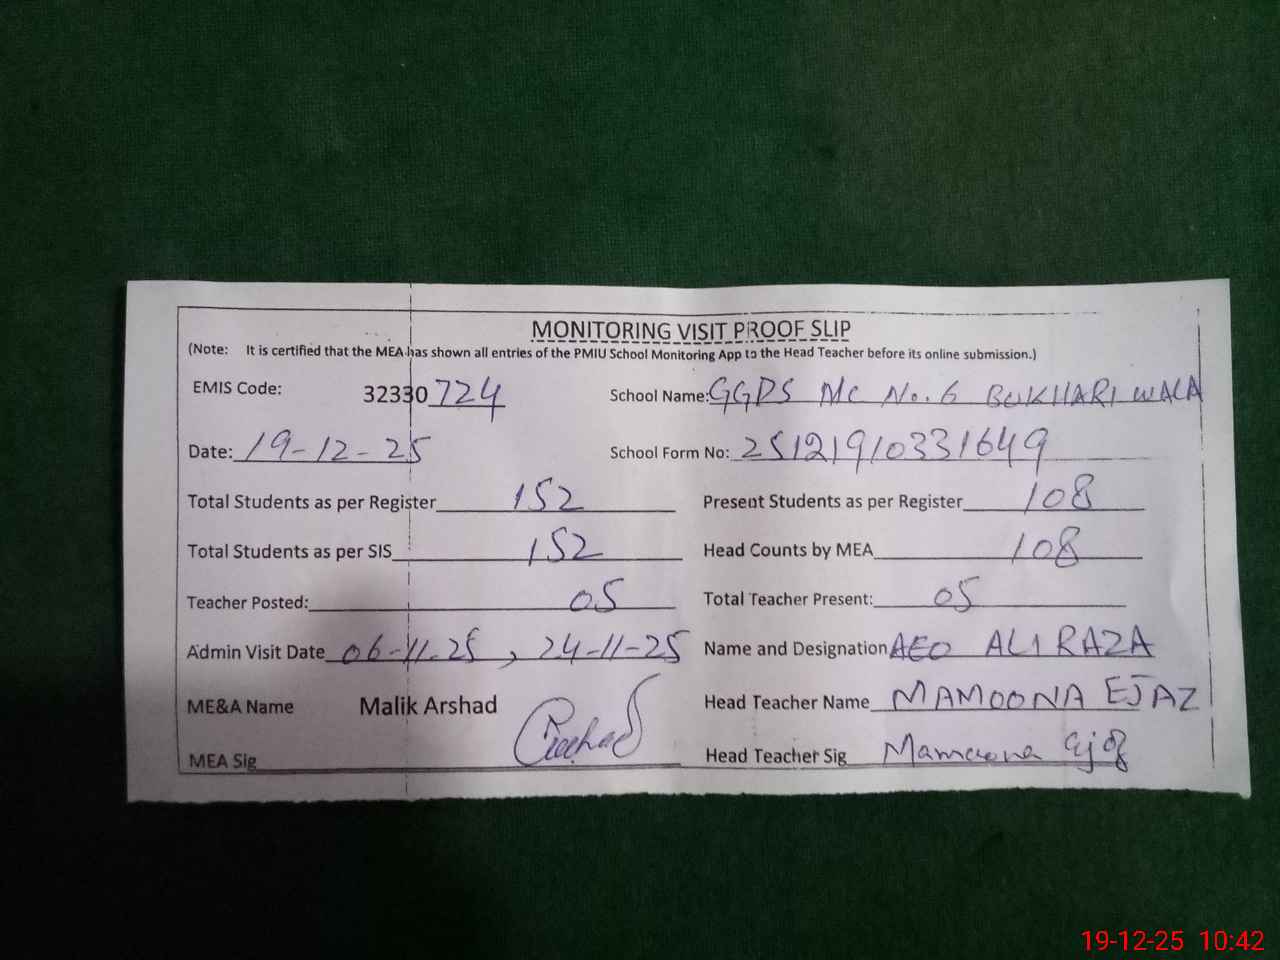 MONITORING VISIT PROOF SLIP
(Note: It is certified that the MEA has shown all entries of the PMIU School Monitoring App to the Head Teacher before its online submission.)
EMIS Code: 32330724 School Name: GGPS MC No. 6 BUKHARI WALA
Date: 19-12-25 School Form No: 25121910331649
Total Students as per Register 152 Present Students as per Register 108
Total Students as per SIS 152 Head Counts by MEA 108
Teacher Posted: 05 Total Teacher Present: 05
Admin Visit Date 06-11-25, 24-11-25 Name and Designation AEO ALI RAZA
ME&A Name Malik Arshad Head Teacher Name MAMOONA EJAZ
MEA Sig Head Teacher Sig Mamoona Ejaz
19-12-25 10:42